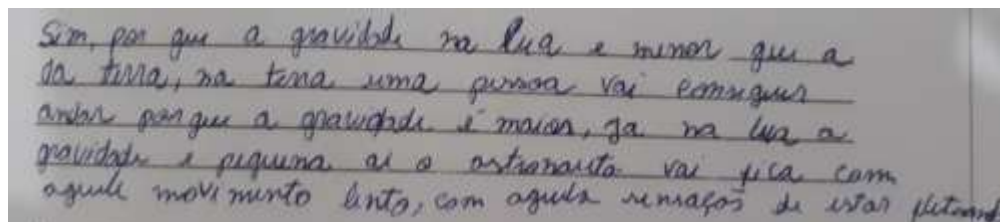 Sim, por que a gravidade na lua e menor que a
da terra, na terra uma pessoa vai conseguir
andar por que a gravidade é maior, ja na lua a
gravidade e pequena ai o astronauta vai fica com
aquele movimento lento, com aquela sensação de estar